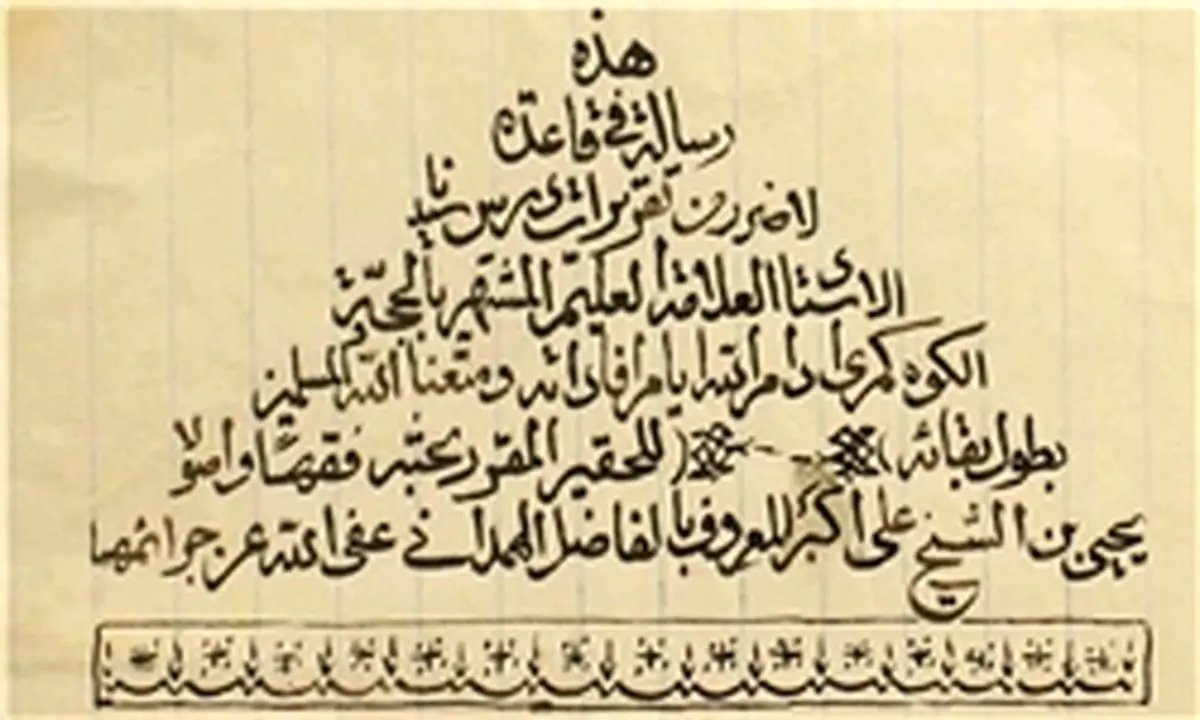 هذه
رسالة في قاعدة
لا ضرر من تقريرات درس سيدنا
الاستاذ العلامة العليم المشتهر بالحجّة
الكوه كمرى ادام الله ايام افاداته ومتعنا الله والمسلمين
بطول بقائه ( ) للحقير المقرر بحثه فقهًا واصولا
يحيى بن الشيخ على اكبر المعروف بالفاضل الهمدانى عفى الله عن جرائمهما